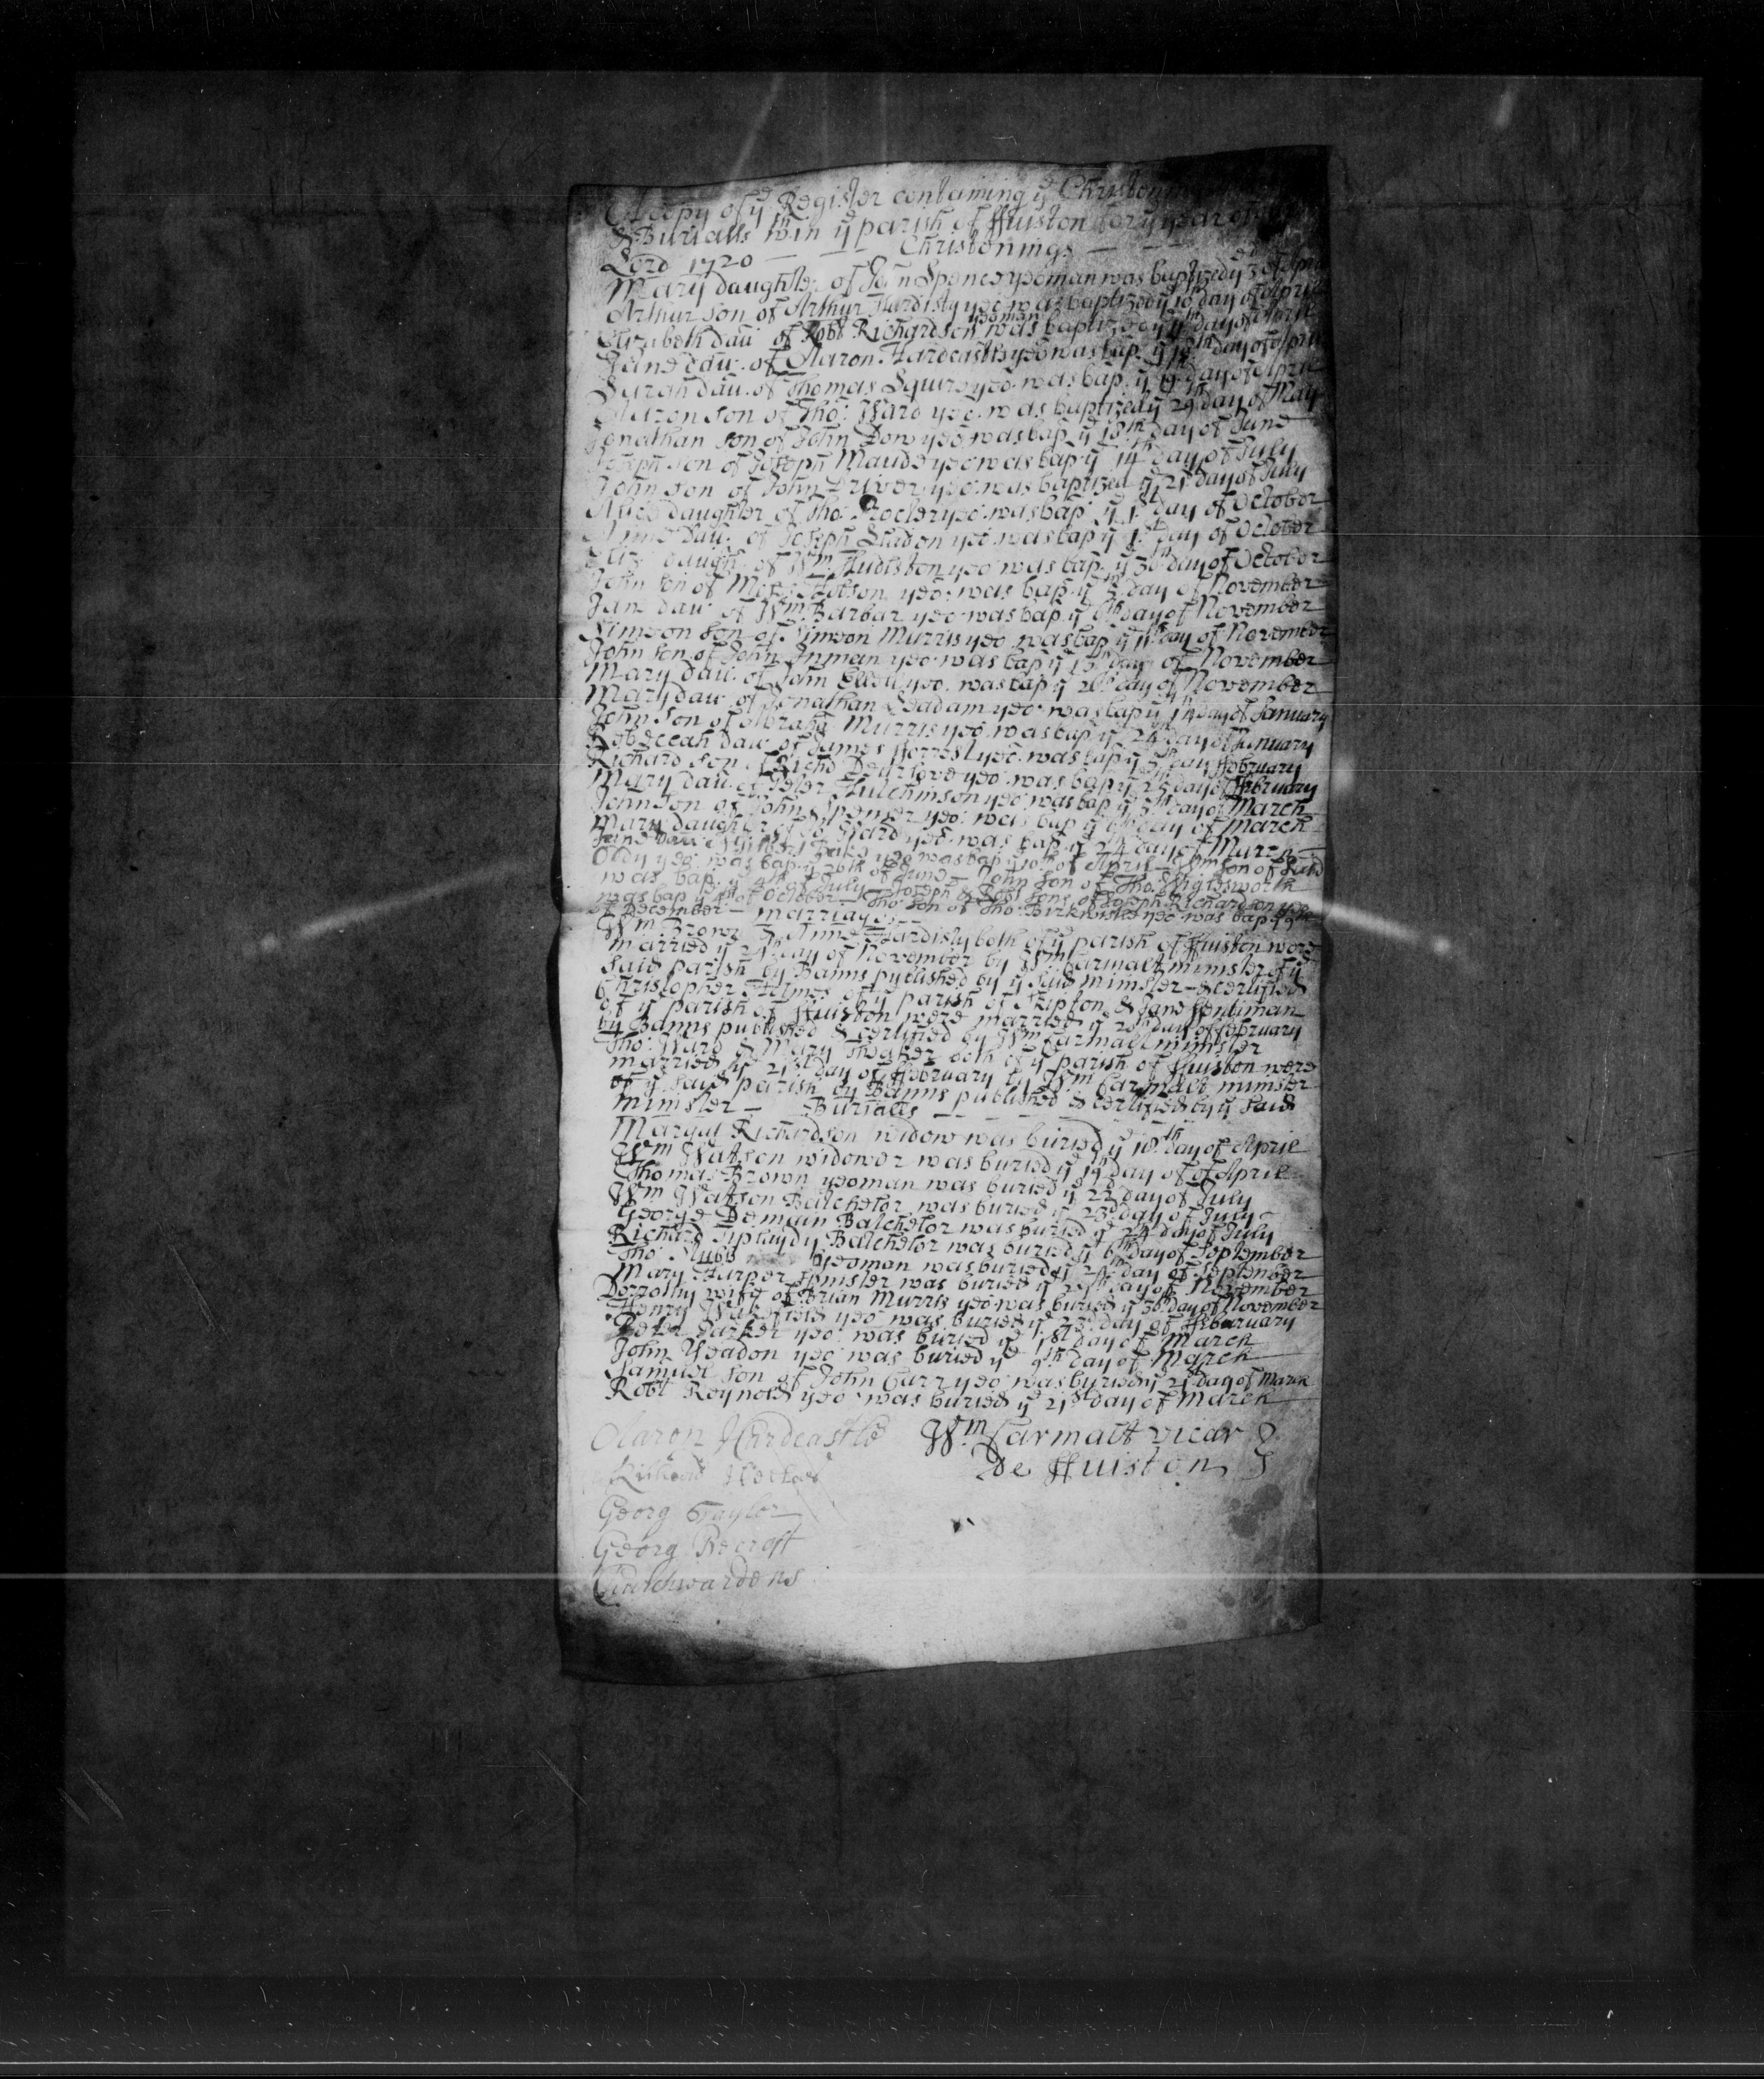 A Copy of ye Register containing ye Christonings
& Burialls wthin ye parish of ffuiston for ye year of
Lord 1720 — — Christonings — — —
Mary daughter of John Spence yeoman was baptized ye 3 of Apri
Arthur son of Arthur Hardisty yeo was baptized ye 10th day of April
Elizabeth dau of Robt Richardson yeoman was baptized ye day of
Jane dau. of Aaron Hardcastle yeo was bap. ye 18th day of Apri
Sarah dau. of Thomas Squire yeo. was bap. ye day of Aprie
Aaron son of Tho: Ward yeo. was baptized ye 29th day of May
Jonathan son of John Dow yeo was bap ye 18th day of June
Joseph son of Joseph Maude yeo was bap. ye 14th day of July
John son of John Driver yeo. was baptized ye 21st day of July
Alice daughter of Tho: yeo. was bap. ye 1st day of October
Anne dau. of Joseph yeo was bap ye 1st day of October
Eliz daugh. of Wm. Hudlston yeo was bap. ye 30th day of October
John son of yeo. was bap. ye day of November
Jane dau. of Wm. Barbar yeo. was bap. ye 6th day of November
Simeon son of Simeon Murris yeo. was bap ye 11th day of November
John son of John Inman yeo. was bap ye 13th day of November
Mary dau. of John yeo. was bap ye 20th day of November
Mary dau. of Jonathan Leadam yeo. was bap ye 14 day of January
John son of Abraha Murris yeo. was bap ye 24th day of January
Rebeccah dau of James fforrest yeo. was bap ye 5th day ffebruary
Richard son of Richd Dearlove yeo was bap ye day of ffebruary
Mary dau. of Peter Hutchinson yeo was bap ye 5th day of March
John son of John Spenser yeo: was bap ye 6th day of March
Mary daughter of Jo Ward yeo. was bap. ye 24 day of March
Jane dau: yeo was bap ye 10th of April — son of
yeo. was bap. ye 26th of June — John son of Tho. Wiglesworth
was bap. ye 4th of July — Joseph & Robt sons of Joseph Richardson yeo
was bap ye 4th of October — Tho: son of Tho: Birkwith yeo was bap ye 9th
of December — Marriages — —
Wm. Brown & Anne Hardisty both of ye parish of ffuiston were
married ye day of November by Wm Carmalt minister of ye
said parish by Banns published by ye said minister — & certified
Christopher Holmes of ye parish of Skipton & Jane
of ye parish of ffuiston were married ye 20th day of ffebruary
by Banns published & certified by Wm Carmalt minister
Tho: Ward & Mary Theaker both of ye parish of ffuiston were
married ye 21st day of ffebruary by Wm Carmalt minister
of ye said parish by Banns published & certified by ye said
minister — Burialls — — — — —
Margat Richardson widow was buried ye 10th day of Aprie
Wm Watson widower was buried ye 19th day of of Aprie
Thomas Brown yeoman was buried ye 22d day of July
Wm Watson Balchelor was buried ye 23d day of July
George Demain Balchelor was buried ye 24 day of July
Richard Tiplaydy Balchelor was buried ye 6th day of September
Tho: yeoman was buried ye day of September
Mary Harper spinster was buried ye day of November
Dorrothy wife of Brian Murris yeo was buried ye 30th day of November
Henry Wakefield yeo was buried ye 23d day of ffebaruary
Peter Parker yeo. was buried ye 1st day of March
John Yeadon yeo was buried ye 9th day of March
Samuel son of John Carr yeo was buried ye 21 day of March
Robt Reynold yeo was buried ye 21st day of March
Aaron Hardcastle Wm. Carmalt vicar
Richard de ffuiston
Georg Taylor
Georg Becroft
Churchwardens